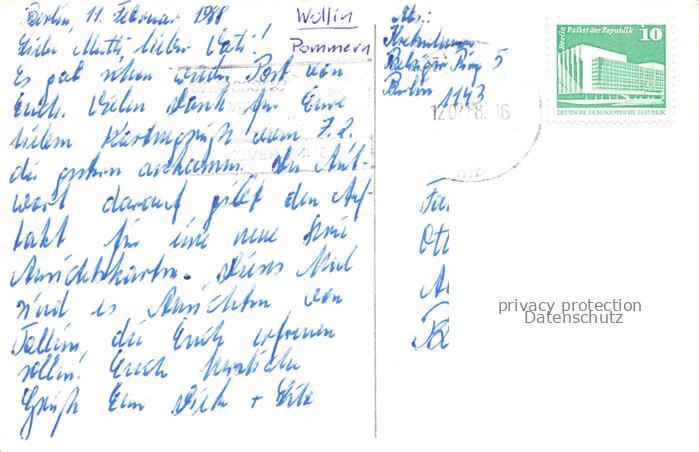 Berlin, 11. Februar 1988
Liebe Mutti, lieber Vati!
Es gab schon wieder Post von
Euch. Vielen Dank für Eure
lieben Kartengrüße vom 7.2.
die gestern ankamen. Die Ant-
wort darauf gibt den Auf-
takt für eine neue Serie
Ansichtskarten. Dieses Mal
sind es Ansichten von
die Euch erfreuen
sollen! Euch herzliche
Grüße Eure +
Wollin
Pommern
Abs.:
Ring 5
Berlin
1143
Berlin Palast der Republik 10
DEUTSCHE DEMOKRATISCHE REPUBLIK
Fa
Ott
privacy protection
Datenschutz